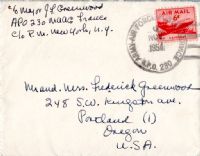 c/o Major J L Greenwood
APO 230 MAAG France
c/o P.M. New York, N.Y.
AIR MAIL
6¢
ARMY-AIR FORCE
1954
A.P.O. 230
Mr. and Mrs. Frederick Greenwood
248 S.W. Kingston Ave.
Portland (1)
Oregon
U.S.A.